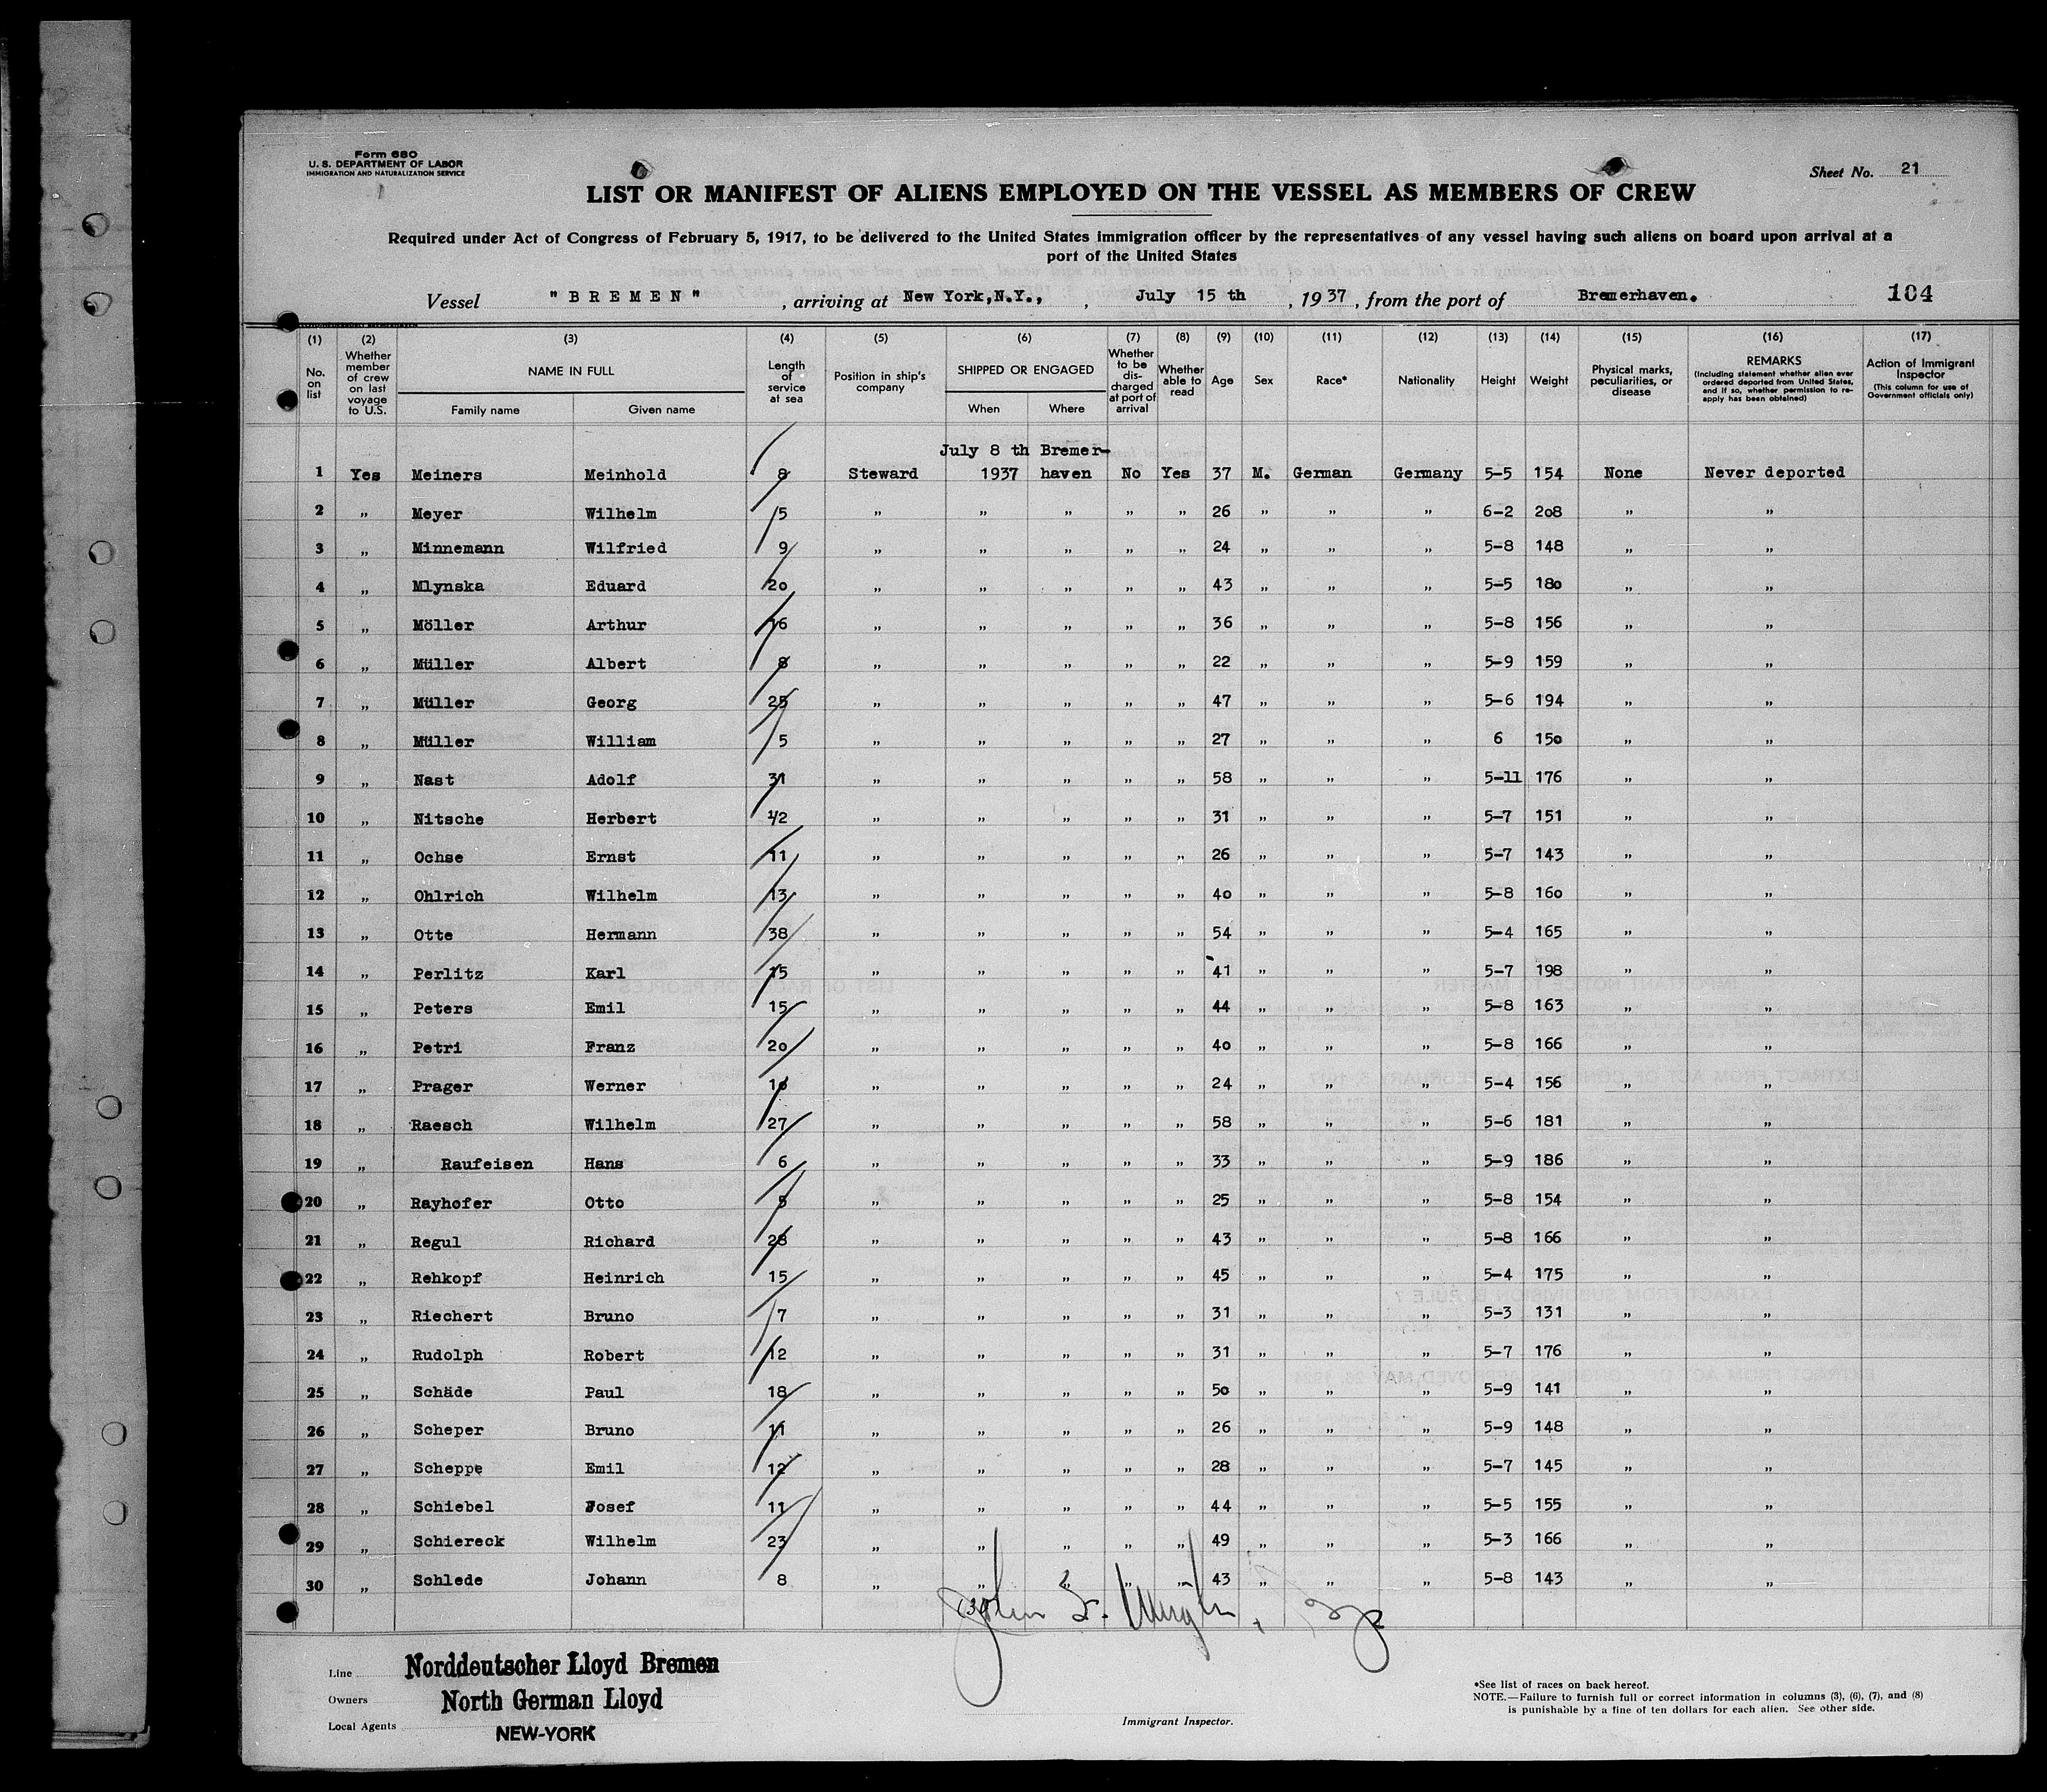 Form 680
U. S. DEPARTMENT OF LABOR
IMMIGRATION AND NATURALIZATION SERVICE
Sheet No. 21
LIST OR MANIFEST OF ALIENS EMPLOYED ON THE VESSEL AS MEMBERS OF CREW
Required under Act of Congress of February 5, 1917, to be delivered to the United States immigration officer by the representatives of any vessel having such aliens on board upon arrival at a
port of the United States
Vessel "BREMEN", arriving at New York,N.Y., , July 15 th, 1937, from the port of Bremerhaven. 104
(1) (2) (3) (4) (5) (6) (7) (8) (9) (10) (11) (12) (13) (14) (15) (16) (17)
No. on list
Whether member of crew on last voyage to U.S.
NAME IN FULL
Family name
Given name
Length of service at sea
Position in ship's company
SHIPPED OR ENGAGED
When
Where
Whether to be discharged at port of arrival
Whether able to read
Age
Sex
Race*
Nationality
Height
Weight
Physical marks, peculiarities, or disease
REMARKS
(Including statement whether alien ever ordered deported from United States, and if so, whether permission to reapply has been obtained)
Action of Immigrant Inspector
(This column for use of Government officials only)
July 8 th Bremer-
1 Yes Meiners Meinhold 8 Steward 1937 haven No Yes 37 M. German Germany 5-5 154 None Never deported
2 " Meyer Wilhelm 5 " " " " " 26 " " " 6-2 208 " "
3 " Minnemann Wilfried 9 " " " " " 24 " " " 5-8 148 " "
4 " Mlynska Eduard 20 " " " " " 43 " " " 5-5 180 " "
5 " Möller Arthur 16 " " " " " 36 " " " 5-8 156 " "
6 " Müller Albert 8 " " " " " 22 " " " 5-9 159 " "
7 " Müller Georg 25 " " " " " 47 " " " 5-6 194 " "
8 " Müller William 5 " " " " " 27 " " " 6 150 " "
9 " Nast Adolf 31 " " " " " 58 " " " 5-11 176 " "
10 " Nitsche Herbert 1/2 " " " " " 31 " " " 5-7 151 " "
11 " Ochse Ernst 11 " " " " " 26 " " " 5-7 143 " "
12 " Ohlrich Wilhelm 13 " " " " " 40 " " " 5-8 160 " "
13 " Otte Hermann 38 " " " " " 54 " " " 5-4 165 " "
14 " Perlitz Karl 15 " " " " " 41 " " " 5-7 198 " "
15 " Peters Emil 15 " " " " " 44 " " " 5-8 163 " "
16 " Petri Franz 20 " " " " " 40 " " " 5-8 166 " "
17 " Prager Werner 10 " " " " " 24 " " " 5-4 156 " "
18 " Raesch Wilhelm 27 " " " " " 58 " " " 5-6 181 " "
19 " Raufeisen Hans 6 " " " " " 33 " " " 5-9 186 " "
20 " Rayhofer Otto 5 " " " " " 25 " " " 5-8 154 " "
21 " Regul Richard 28 " " " " " 43 " " " 5-8 166 " "
22 " Rehkopf Heinrich 15 " " " " " 45 " " " 5-4 175 " "
23 " Riechert Bruno 7 " " " " " 31 " " " 5-3 131 " "
24 " Rudolph Robert 12 " " " " " 31 " " " 5-7 176 " "
25 " Schäde Paul 18 " " " " " 50 " " " 5-9 141 " "
26 " Scheper Bruno 11 " " " " " 26 " " " 5-9 148 " "
27 " Scheppe Emil 12 " " " " " 28 " " " 5-7 145 " "
28 " Schiebel Josef 11 " " " " " 44 " " " 5-5 155 " "
29 " Schiereck Wilhelm 23 " " " " " 49 " " " 5-3 166 " "
30 " Schlede Johann 8 " " " " " 43 " " " 5-8 143 " "
(30) John
Line Norddeutscher Lloyd Bremen
Owners North German Lloyd
Local Agents NEW-YORK
Immigrant Inspector.
*See list of races on back hereof.
NOTE.—Failure to furnish full or correct information in columns (3), (6), (7), and (8)
is punishable by a fine of ten dollars for each alien. See other side.